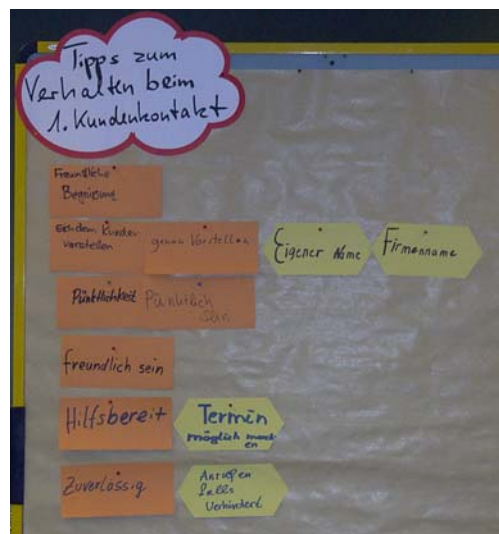 Tipps zum
Verhalten beim
1. Kundenkontakt
Freundliche
Begrüßung
Sich dem Kunden
vorstellen
genau Vorstellen
Eigener Name
Firmenname
Pünktlichkeit
Pünktlich
sein
freundlich sein
Hilfsbereit
Termin
möglich mach
en
Zuverlässig
Anrufen
falls
Verhindert